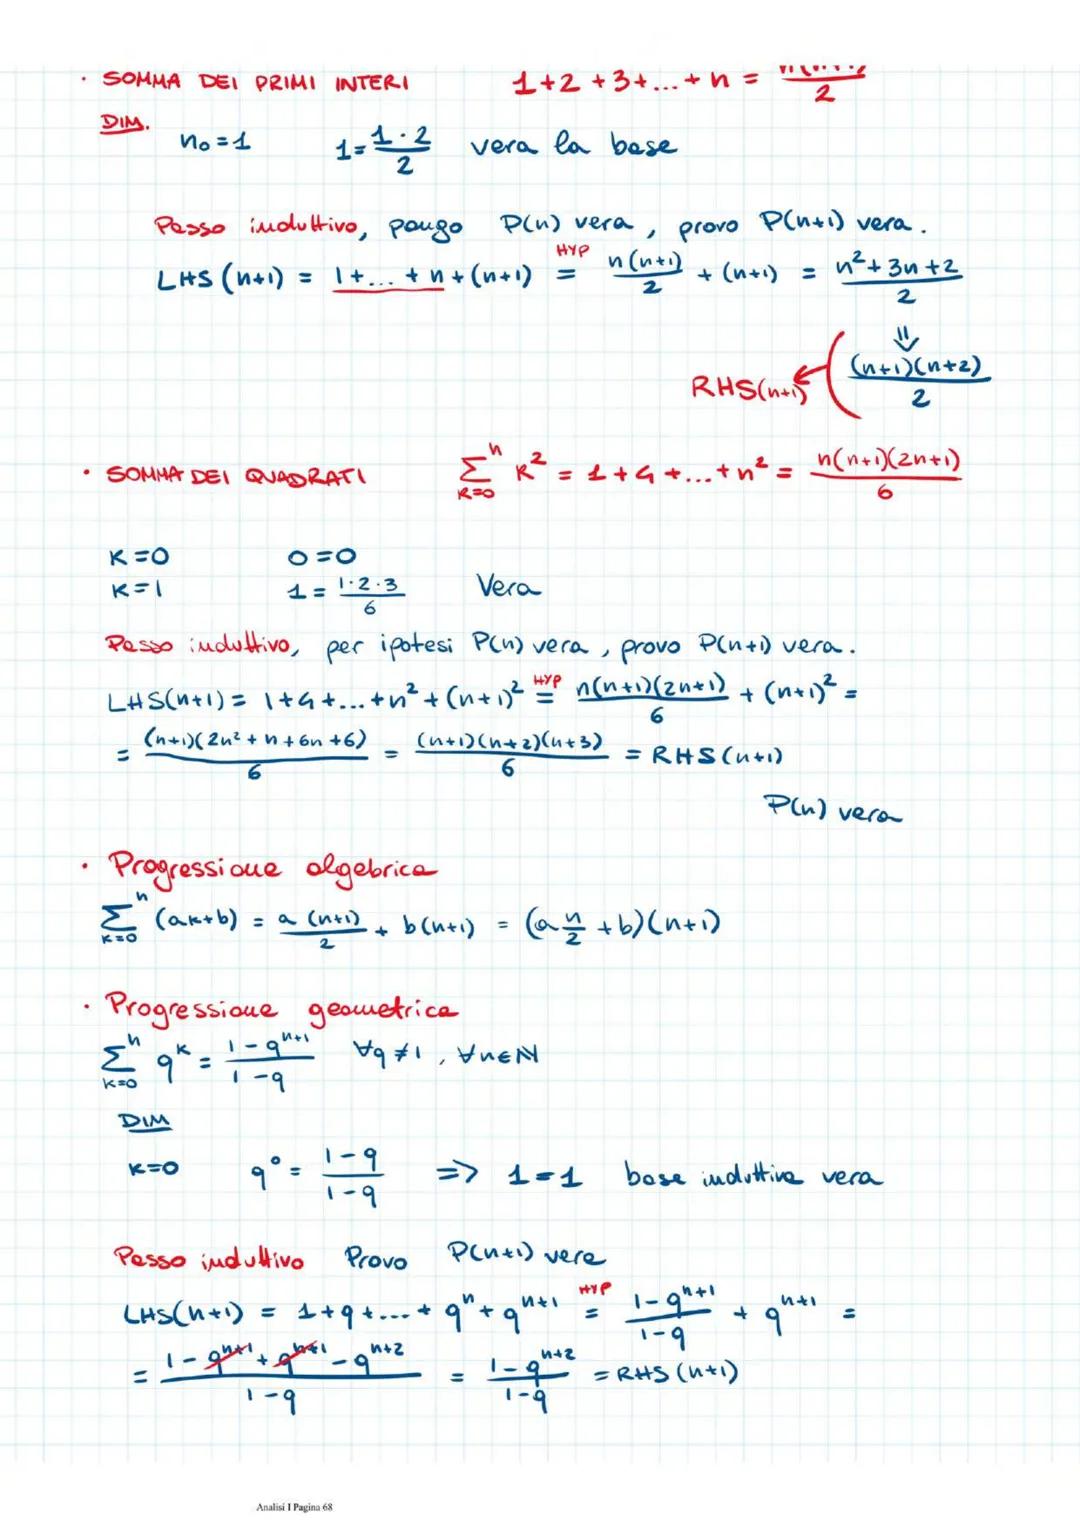 · SOMMA DEI PRIMI INTERI 1+2+3+...+n = n(n+1)/2
DIM.
n₀=1 1 = 1·2/2 vera la base
Passo induttivo, pongo P(n) vera, provo P(n+1) vera.
LHS(n+1) = 1+...+n+(n+1) =^HYP n(n+1)/2 + (n+1) = n²+3n+2/2
RHS(n+1) (n+1)(n+2)/2
· SOMMA DEI QUADRATI Σ_{K=0}^{n} K² = 1+4+...+n² = n(n+1)(2n+1)/6
K=0 0=0
K=1 1 = 1·2·3/6 Vera
Passo induttivo, per ipotesi P(n) vera, provo P(n+1) vera.
LHS(n+1) = 1+4+...+n²+(n+1)² =^HYP n(n+1)(2n+1)/6 + (n+1)² =
= (n+1)(2n²+n+6n+6)/6 = (n+1)(n+2)(n+3)/6 = RHS(n+1)
P(n) vera
· Progressione algebrica
Σ_{K=0}^{n} (ak+b) = a (n+1)/2 + b(n+1) = (a n/2 + b)(n+1)
· Progressione geometrica
Σ_{K=0}^{n} q^K = 1-q^{n+1}/1-q ∀q≠1, ∀n∈N
DIM
K=0 q⁰ = 1-q/1-q => 1=1 base induttiva vera
Passo induttivo Provo P(n+1) vera
LHS(n+1) = 1+q+...+q^n+q^{n+1} =^HYP 1-q^{n+1}/1-q + q^{n+1} =
= 1-q^{n+1}+q^{n+1}-q^{n+2}/1-q = 1-q^{n+2}/1-q = RHS(n+1)
Analisi I Pagina 68